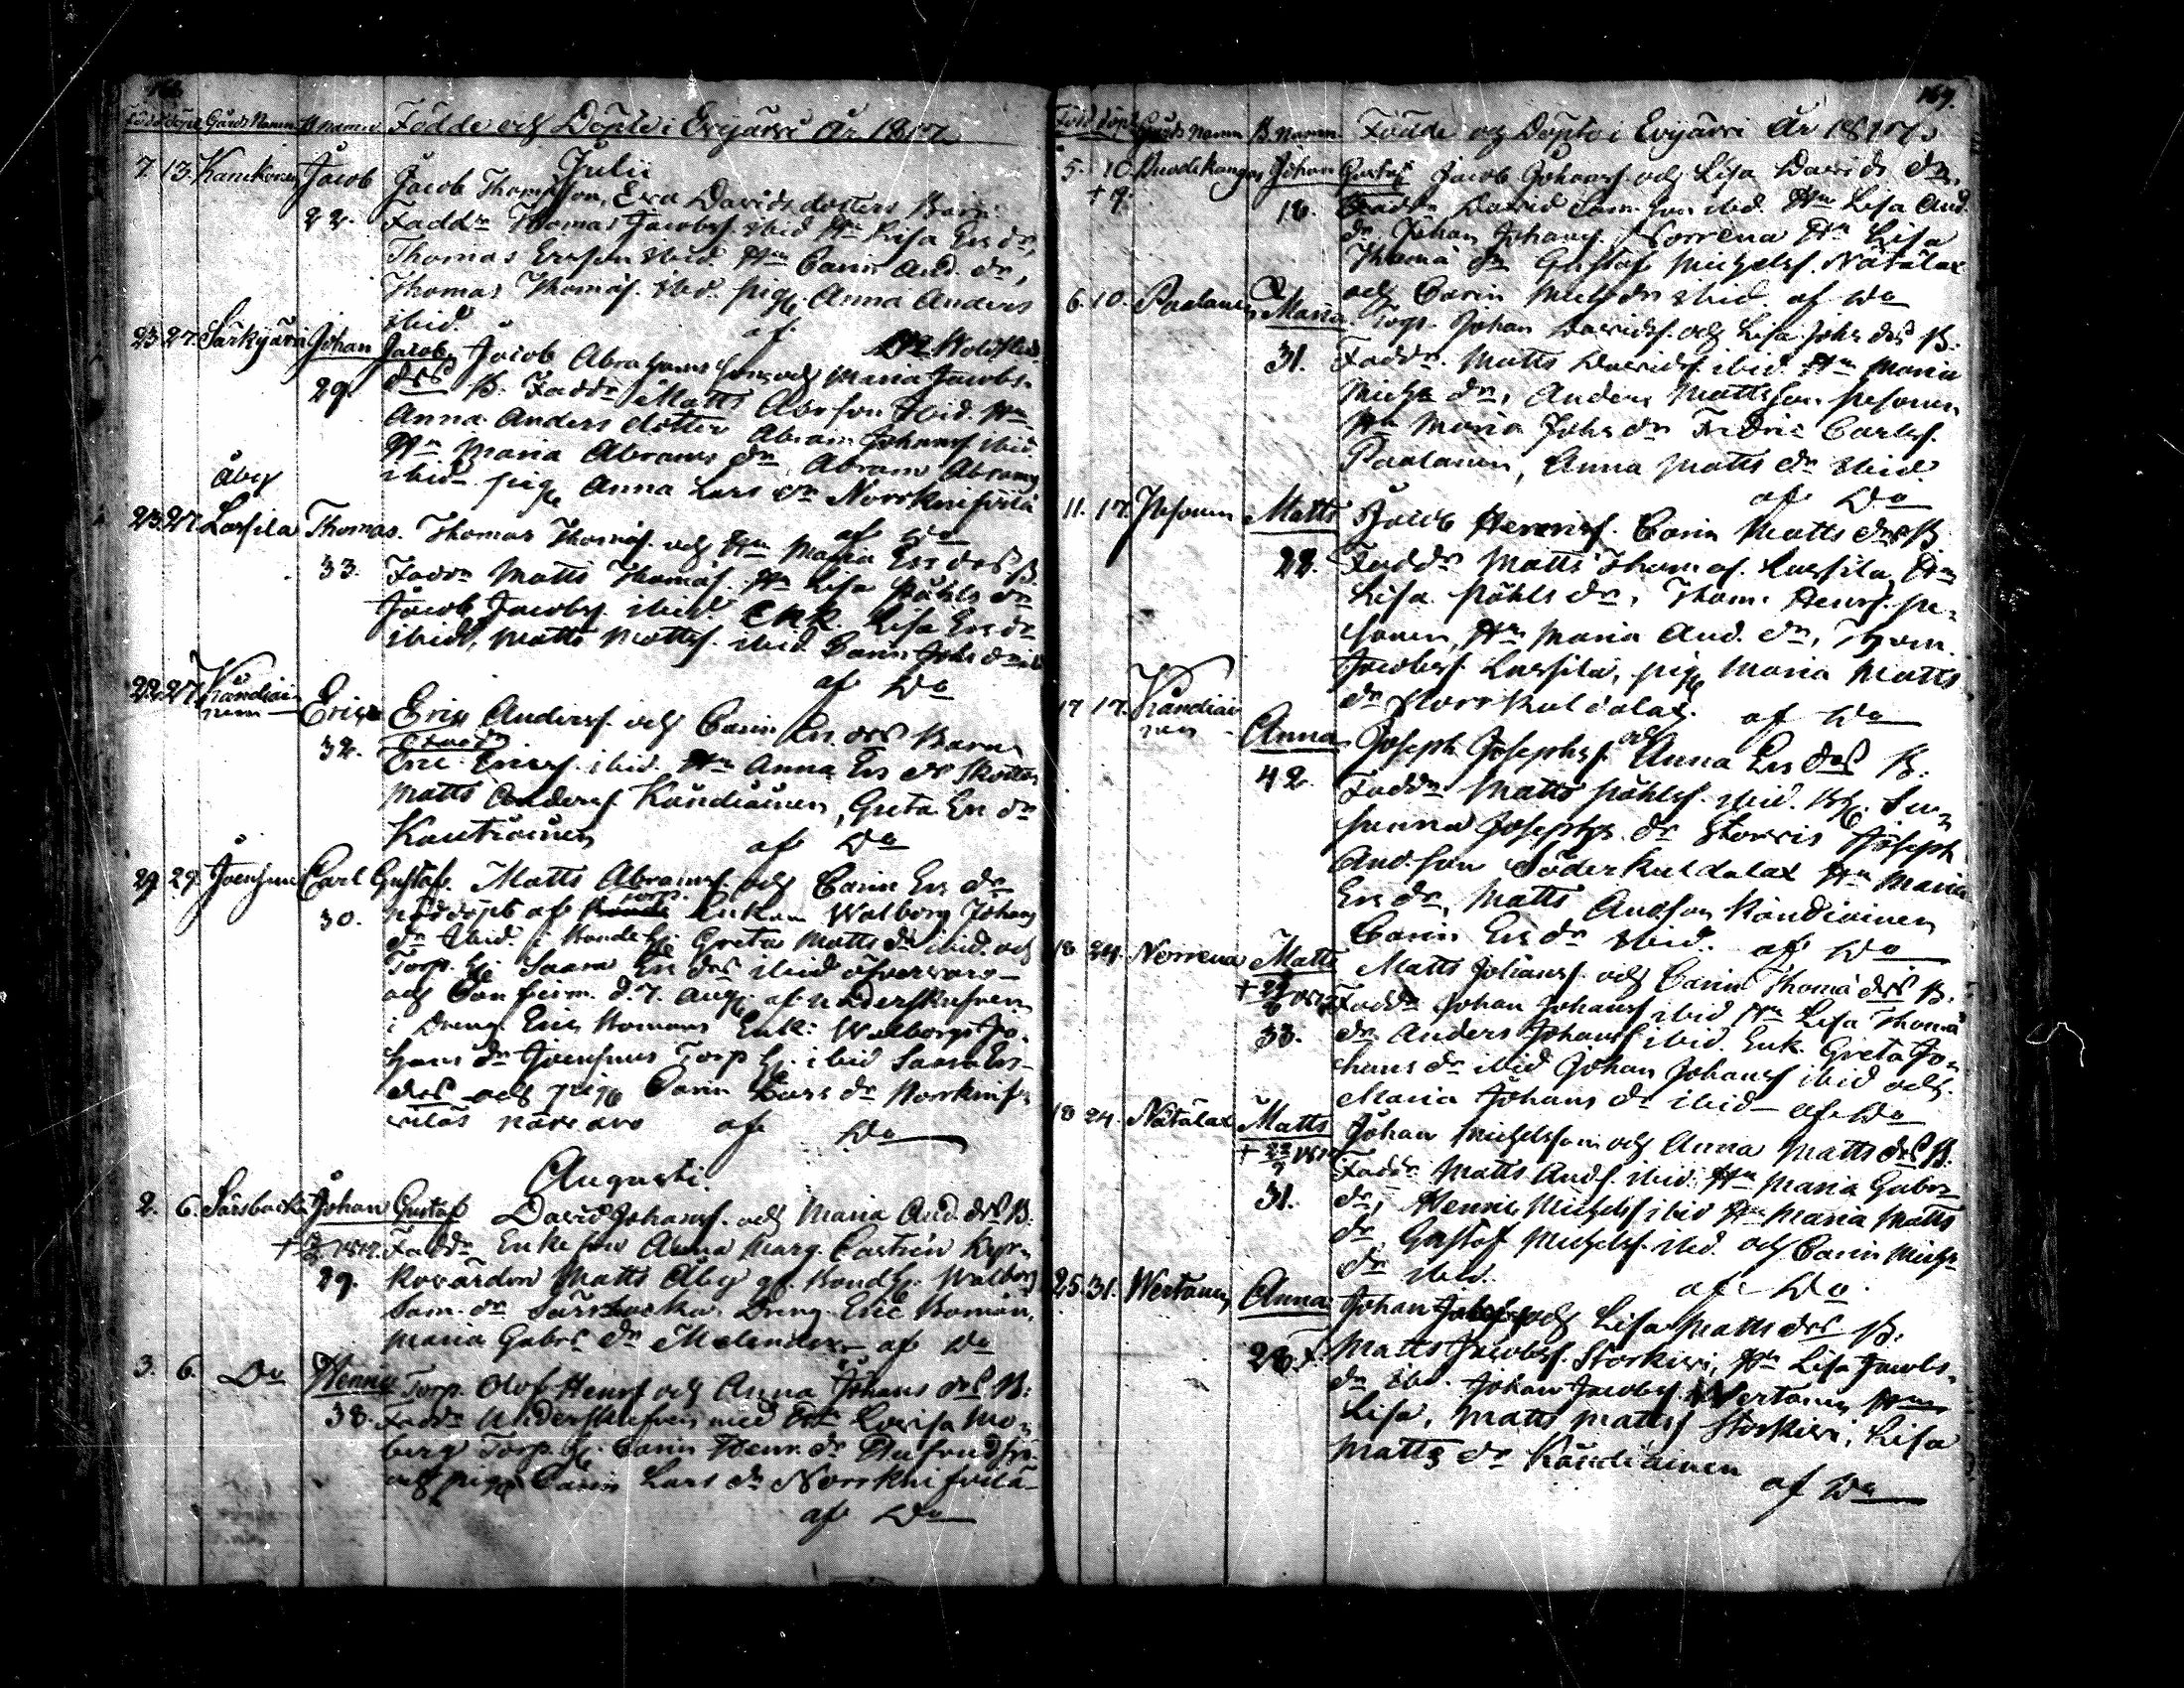 Född döpt Gårds Namn B. namn Födde och Döpte i Evijärvi År 1817.
Julii
7. 13. Kanckonen Jacob Jacob Thomasson, Eva Davids dotters Barn
22. Fadd:r Thomas Jacobss. ibid. H:u Lisa Ers dr,
Thomas Ersson ibid. H:u Carin And. dr,
Thomas Thomass. ibid. pig. Anna Anders
ibid. af
23. 27. Särkijärvi Johan Jacob, Jacob Abrahamsson och Maria Jacobs
29. drs B. Fadd:r Matts Abrson ibid. H:u
Anna Anders dotter Abram Johanss ibid.
H:u Maria Abrams dr, Abram Abrams
ibid pig Anna Lars dr Norrknifsilä
af Do
Åby
23. 27. Lassila Thomas. Thomas Thomass. och H:u Maria Ers drs B.
33. Fadd:r Matts Thomass. H:u Lisa Påhls dr
Jacob Jacobss. ibid. Enk. Lisa Ers dr
ibid, Matts Mattss. ibid. Carin Johs dr ib
af Do
22. 27. Kändiäi
nen Eric Eric Anderss. och Carin Ers. drs Barn
32. Eric Ericss. ibid. H:u Anna Ers dr
Matts Anderss. Kändiäinen, Greta Ers dr
Kändiäinen af Do
29. 29. Joensuu Carl Gustaf. Matts Abramss. och Carin Ers dr
30. Nöddöpt af Enkan Walborg Johans
dr ibid. i Greta Matts dr ibid. och
Torp. H. Saara Ers drs ibid öfvervaro
och Confirm. d. 7. Aug. af underskrefven
i Dreng. Eric Homans Enk: Walborgs Jo-
hans dr Joensuu Torp H. ibid Saara Ers
drs och pig Carin Lars dr Norrknif
vilas närvaro af Do
Augusti.
2. 6. Särsbacka Johan Gustaf David Johanss. och Maria And. drs B.
29. Fadd:r Enkefru Anna Marg. Castrén Kyr-
kovärden Matts Åby H. Walborg
Sam. dr Särsbacka. Dreng. Eric Homan,
Maria Gabrs dr Melender af Do
3. 6. Do Henric Torp. Olof Henrs och Anna Johans drs B.
38. Fadd:r Underskrefven med Lovisa Mo-
berg Torp. H. Carin Henr. dr
och pig Carin Lars dr Norrknifvilä
af Do
169.
Född döpt Gårds namn B. namn. Födde och Döpte i Evijärvi År 1817.
5. 10. Johan Gustaf Jacob Johanss. och Lisa Davids drs,
18. Fadd:r David Sam. son ibid. H:u Lisa And.
dr, Johan Johanss. Norrena H:u Lisa
Thoma dr Gustaf Michelss. Nätälax
och Carin Mich dr ibid. af Do
6. 10. Paalanen Maria. Torp. Johan Davidss. och Lisa Johs drs B.
31. Fadd:r. Matts Davidss. ibid. H:u Maria
Michs dr, Anders Mattsson Pesonen
H:u Maria Johs dr Fredric Carlss.
Paalanen, Anna Matts dr ibid.
af Do
11. 17. Pesonen Matts Jacob Henricss. Carin Matts drs B.
22. Fadd:r Matts Thomas. Lassila H:u
Lisa Påhls dr, Thom. Henrss. Pe-
sonen, H:u Maria And. dr, Thom.
Jacobss. Lassila, pig Maria Matts
dr Norrkuldalax. af Do
17 17. Kändiäi
nen Anna Joseph Josephss. och Anna Ers drs B.
42. Fadd:r Matts Påhlss. ibid. Su-
sanna Josephs dr Joseph
And.son Söderkuldalax H:u Maria
Ers dr, Matts Andson Kändiäinen
Carin Ers dr ibid. af Do
18 24. Norrena Matts Matts Johanss. och Carin Thoma drs B.
33. Fadd:r Johan Johanss ibid H:u Lisa Thoma
dr Anders Johanss ibid. Enk. Greta Jo-
hans dr ibid Johan Johanss ibid och
Maria Johans dr ibid af Do
18 24. Nätälax Matts Johan Michelsson och Anna Matts drs B.
31. Fadd:r Matts Ands. ibid. H:u Maria Gabrs
dr, Henric Michelss ibid H:u Maria Matts
dr, Gustaf Michelss. ibid. och Carin Michs
dr ibid. af Do.
25. 31. Wertanen Anna Johan och Lisa Matts drs B.
28. F. Matts Jacobss. Storkivi, H:u Lisa Jacobs
dr ibd. Johan Jacobss. Wertanen H:u
Lisa, Matts Mattss Storkivi, Lisa
Matts dr Kändiäinen
af Do